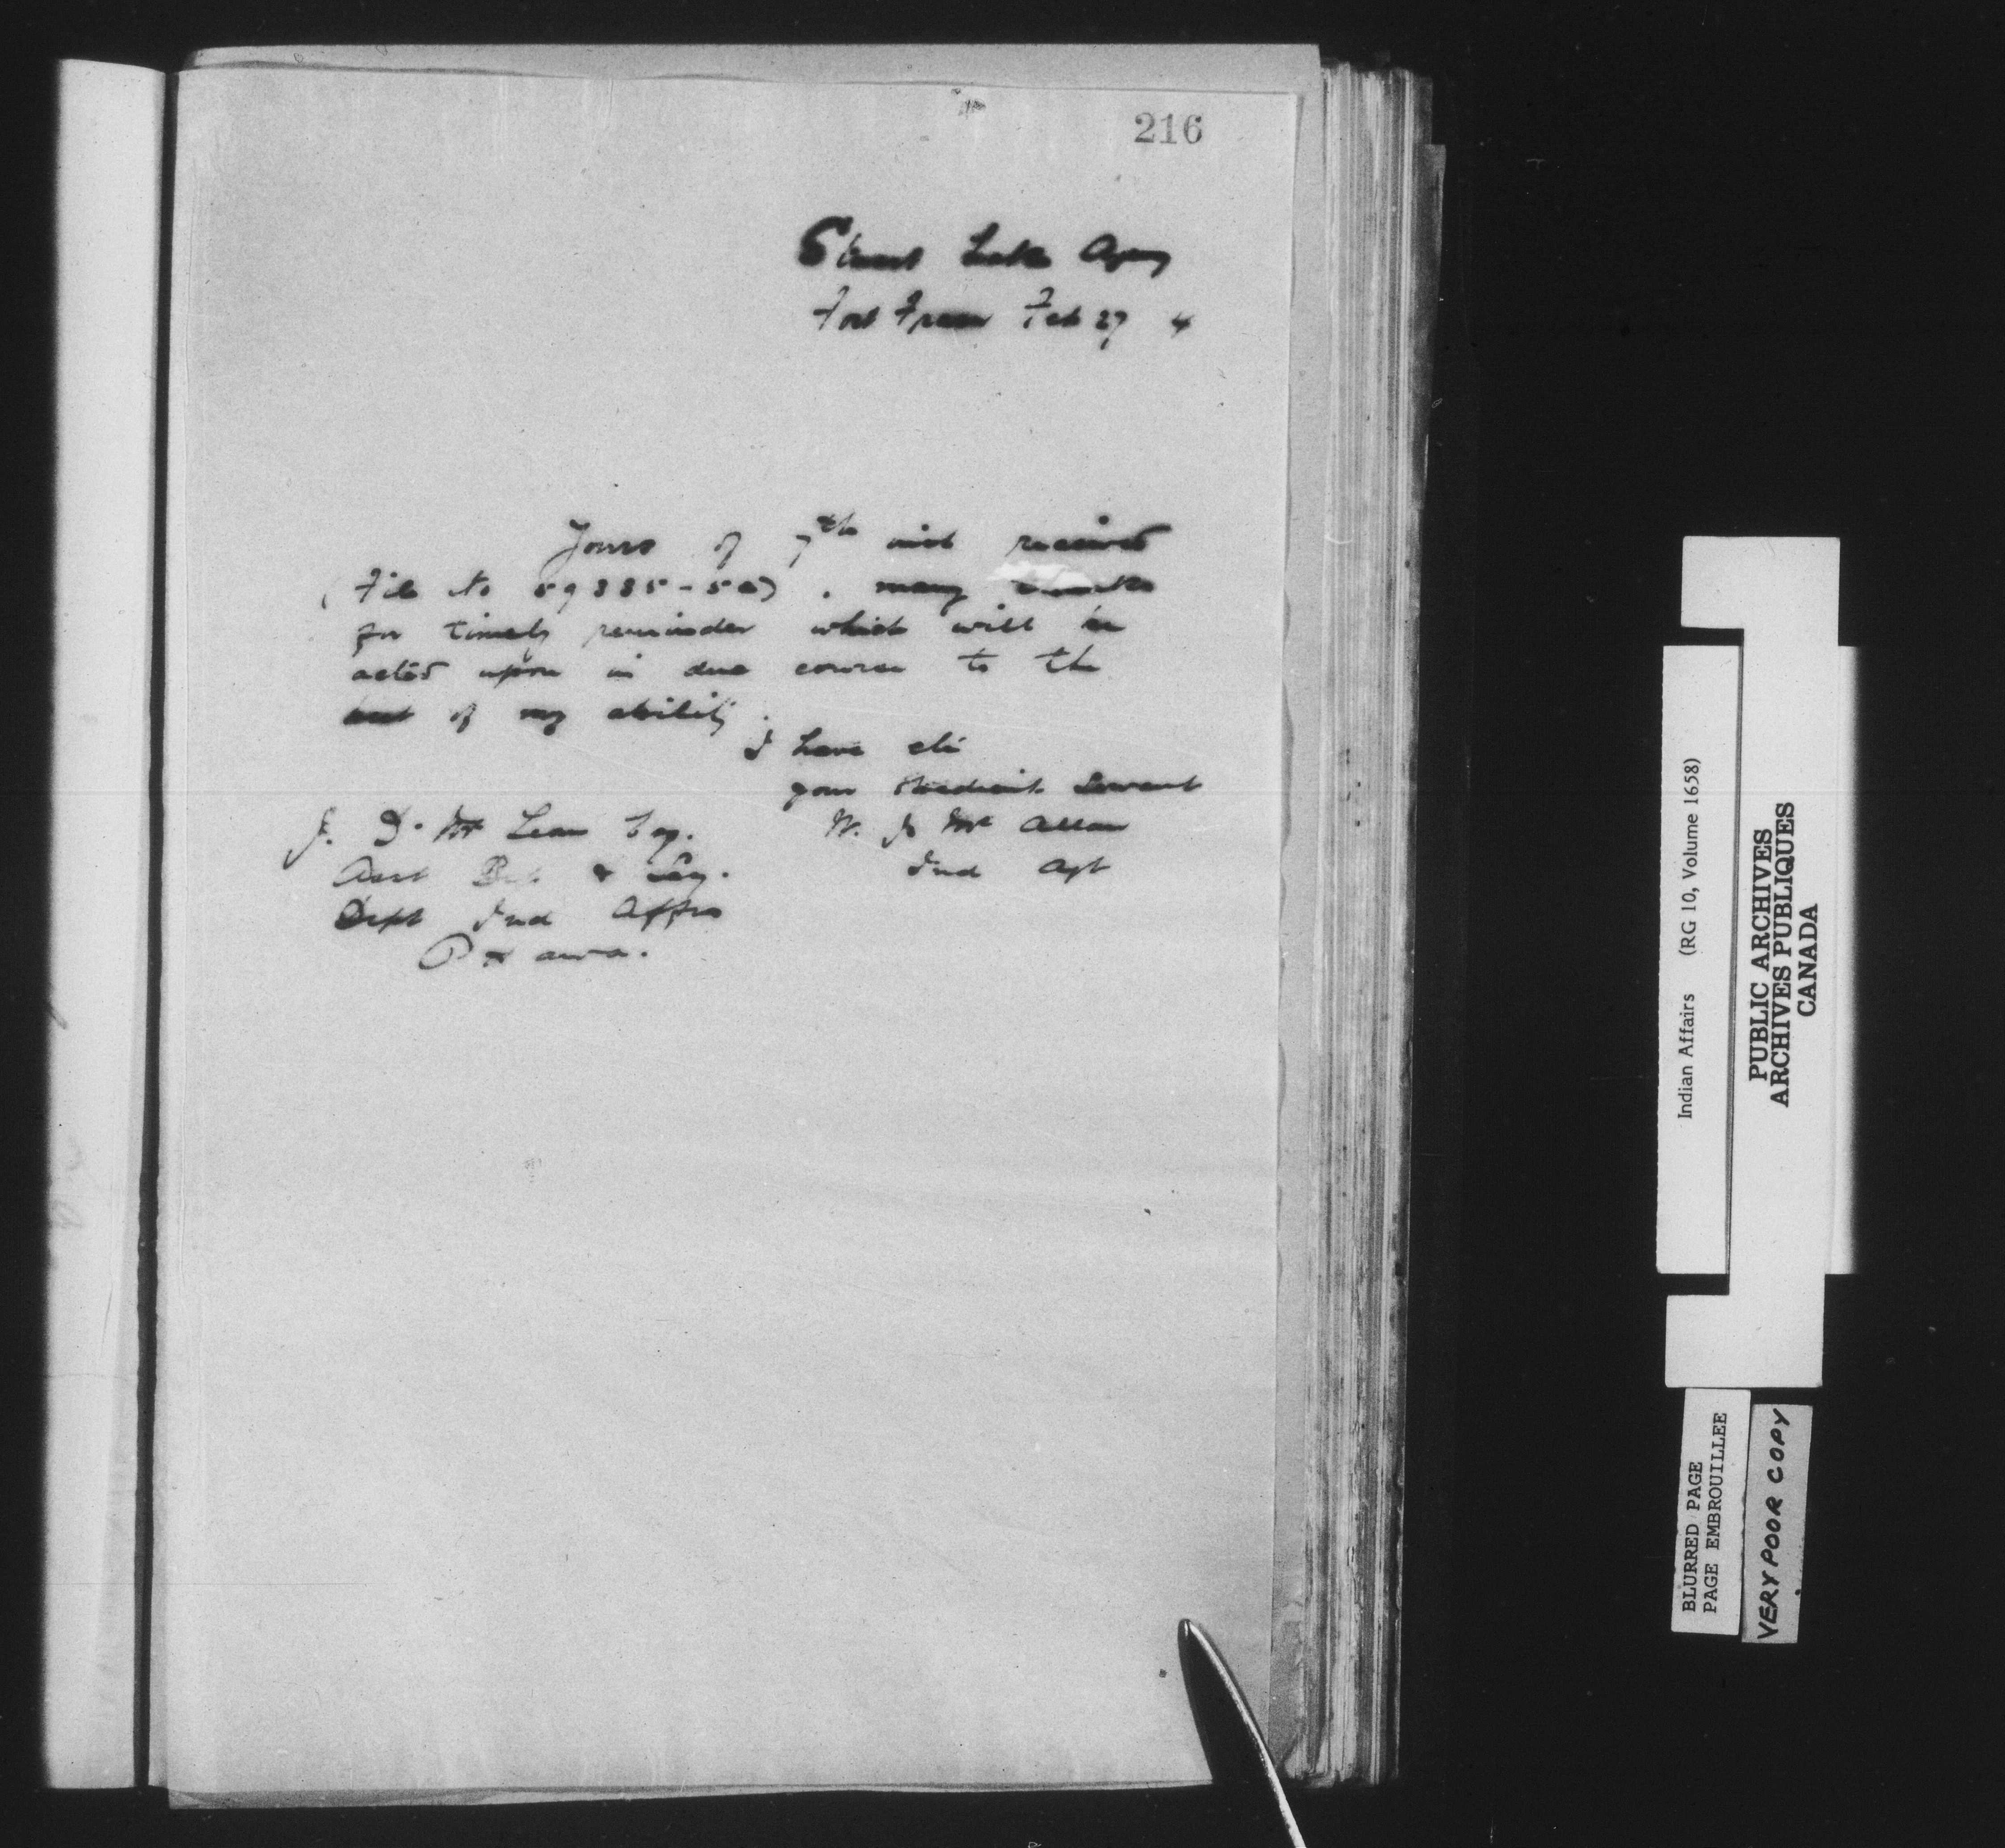 216
Stuart Lake Agency
Fort Fraser Feb 27 4
Yours of 7th inst received
(File No 59335-5) . many thanks
for timely reminder which will be
acted upon in due course to the
best of my ability.
I have etc
your obedient Servant
J. D. McLean Esq. W. J. McAllan
Asst & Secy. Ind Agt
Dept Ind Affrs
Ottawa.
Indian Affairs (RG 10, Volume 1658)
PUBLIC ARCHIVES
ARCHIVES PUBLIQUES
CANADA
BLURRED PAGE
PAGE EMBROUILLEE
VERY POOR COPY